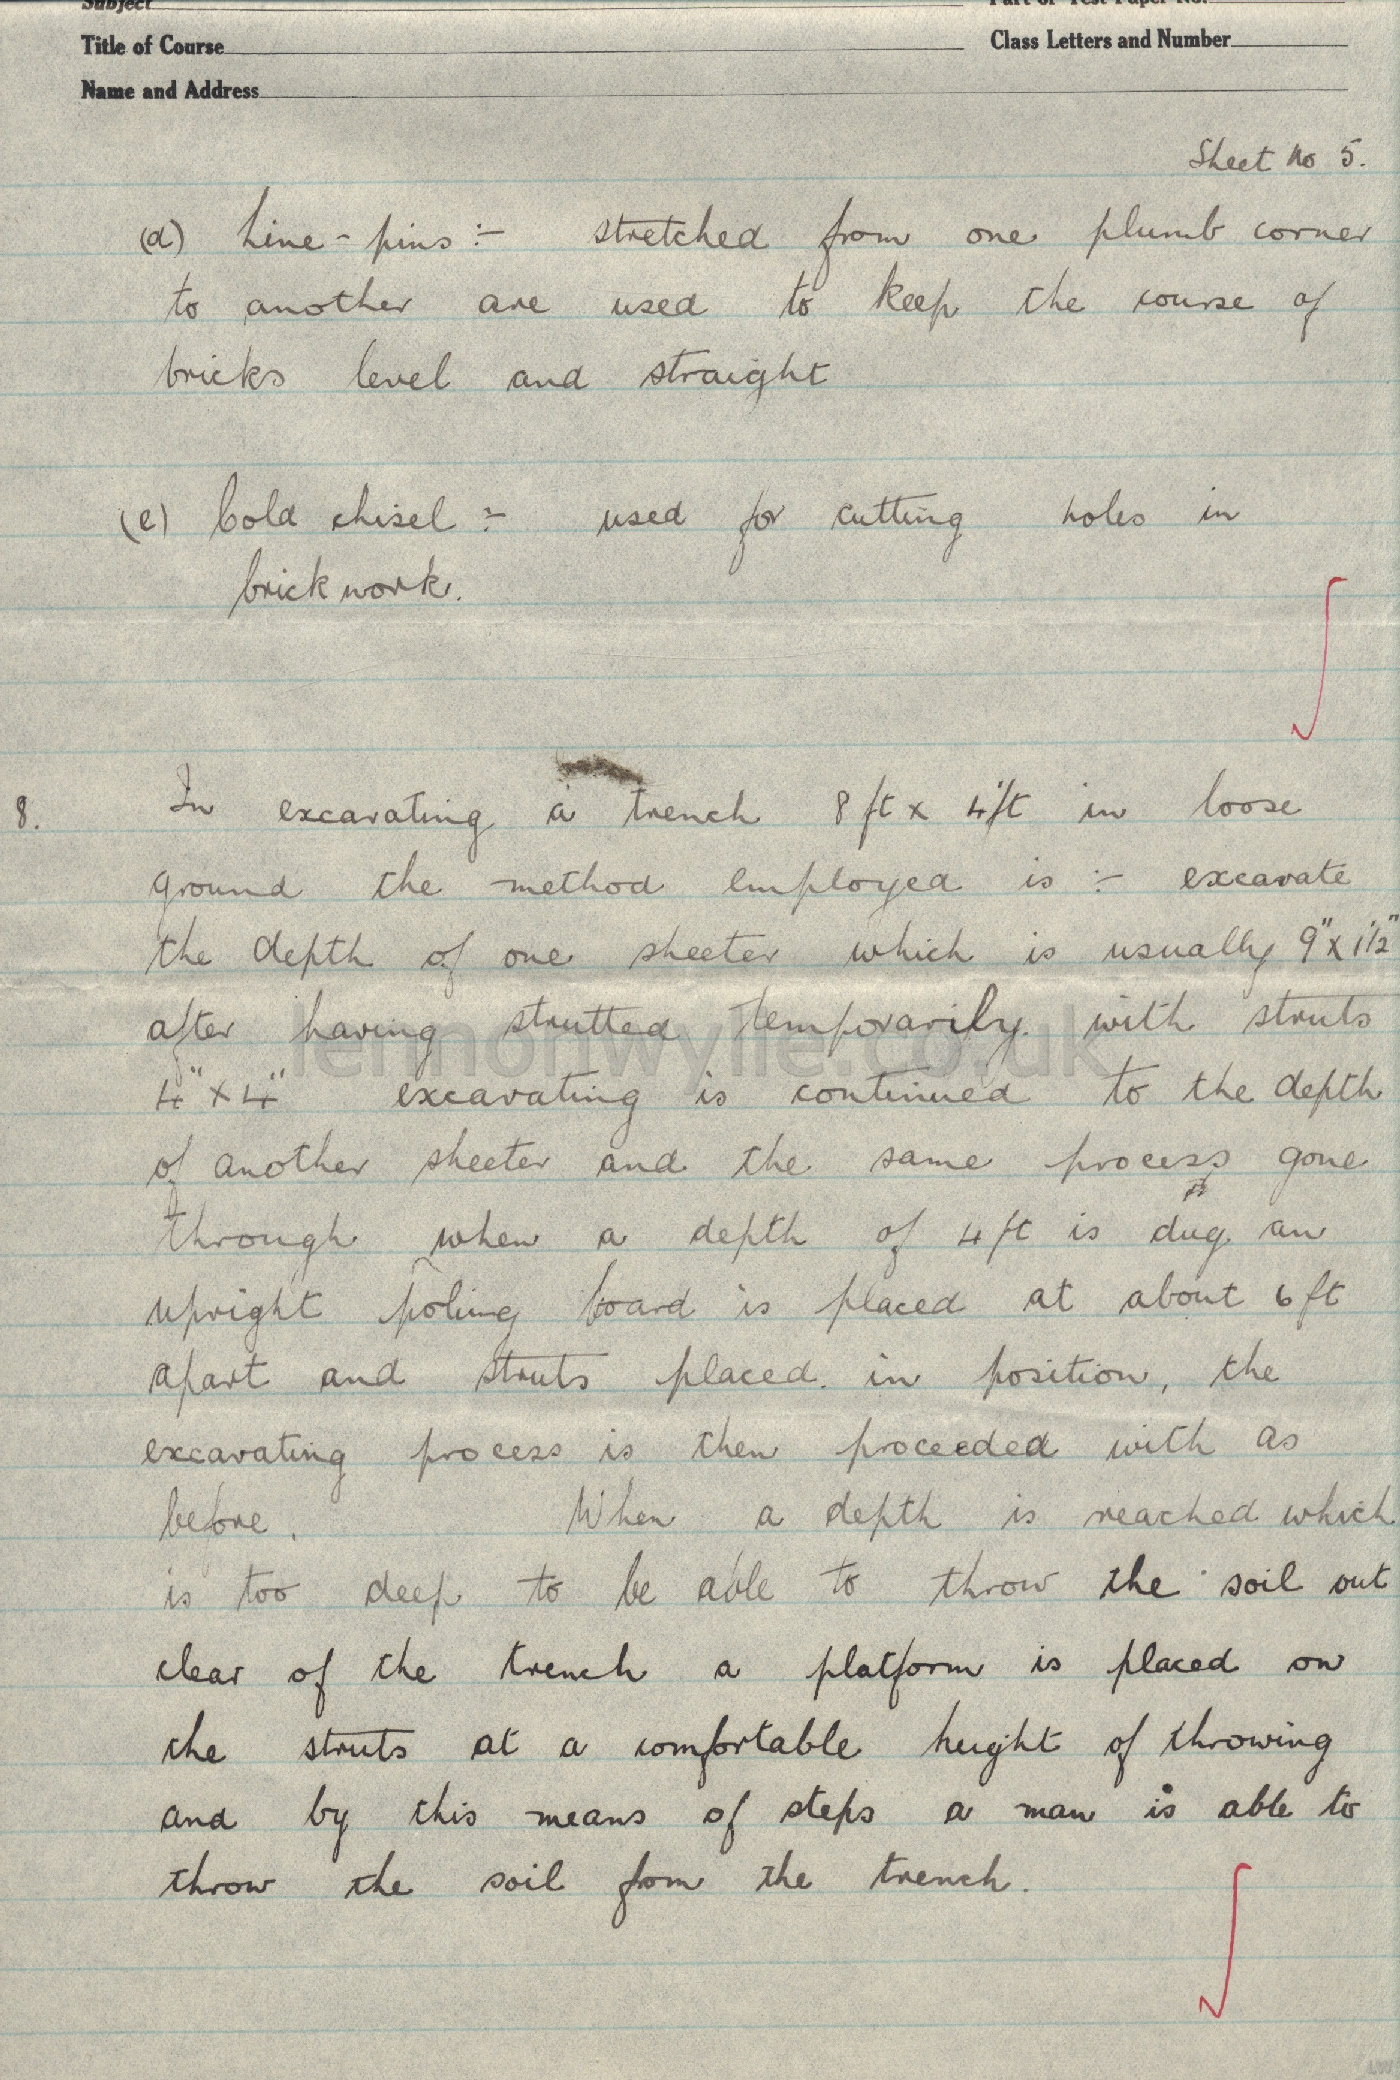 Subject
Part or Test Paper No.
Title of Course
Class Letters and Number
Name and Address
Sheet No 5.
(d) Line-pins :- stretched from one plumb corner
to another are used to keep the course of
bricks level and straight
(e) Cold chisel :- used for cutting holes in
brickwork.
8. In excavating a trench 8 ft x 4 ft in loose
ground the method employed is :- excavate
the depth of one sheeter which is usually 9" x 1½"
after having strutted temporarily with struts
4" x 4" excavating is continued to the depth
of another sheeter and the same process gone
through when a depth of 4 ft is dug an
upright poling board is placed at about 6 ft
apart and struts placed in position, the
excavating process is then proceeded with as
before. When a depth is reached which
is too deep to be able to throw the soil out
clear of the trench a platform is placed on
the struts at a comfortable height of throwing
and by this means of steps a man is able to
throw the soil from the trench.
lennonwylie.co.uk